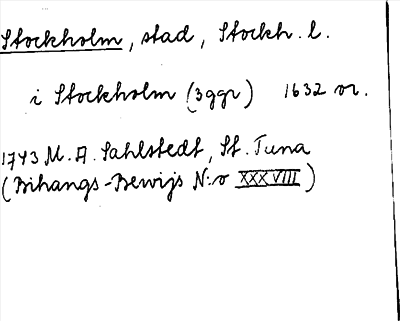 Stockholm, stad, Stockh. l.
i Stockholm (3ggr) 1632 or.
1743 M. A. Sahlstedt, St. Tuna
(Bihangs-Bewijs N:o XXXVIII)